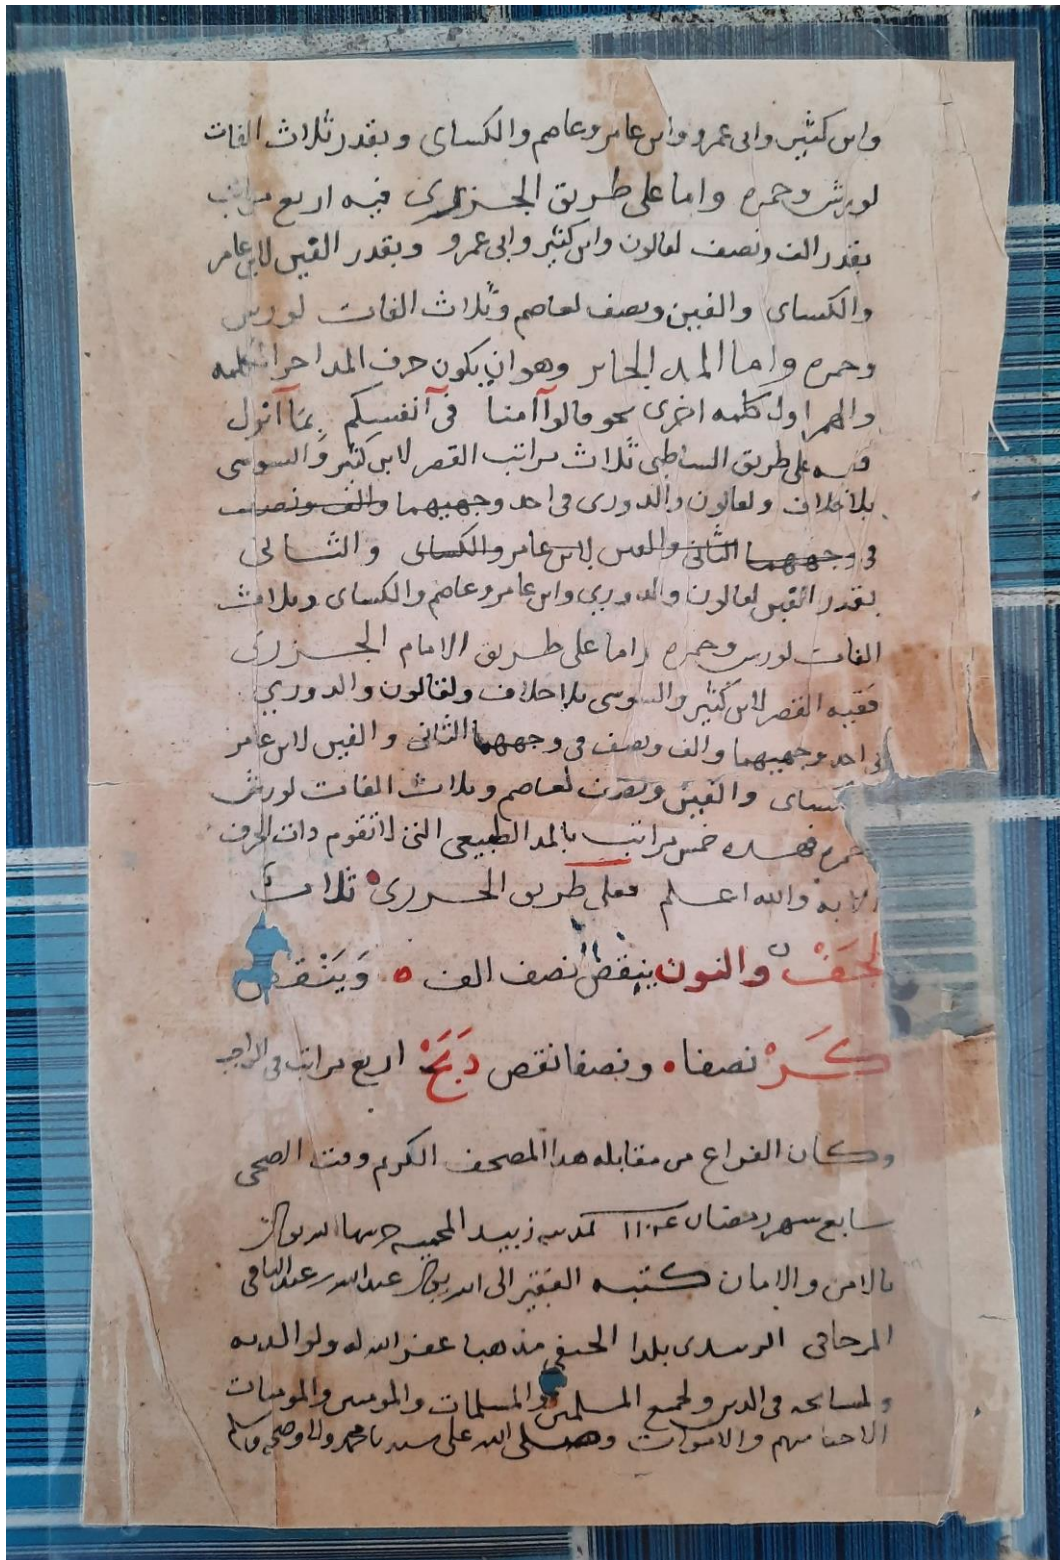 وابن كثير وابى عمرو وابن عامر وعاصم والكساى وبقدر ثلاث الفات
لورش وحمزه واما على طريق الجزرى ففيه اربع مراتب
بقدر الف ونصف لقالون وابن كثير وابى عمرو وبقدر الفين لابن عامر
والكساى والفين ونصف لعاصم وثلاث الفات لورش
وحمزه واما المد الجايز وهو ان يكون حرف المد اخر الكلمه
والهمز اول كلمه اخرى نحو قالوا آمنا فى آنفسكم بما آنزل
ففيه على طريق الشاطبى ثلاث مراتب القصر لابن كثير والسوسى
بلا خلاف ولقالون والدورى فى احد وجهيهما والف ونصف
فى وجههما الثانى والفين لابن عامر والكساى والثانى
بقدر الفين لقالون والدوري وابن عامر وعاصم والكساى وثلاث
الفات لورش وحمزه واما على طريق الامام الجزرى
ففيه القصر لابن كثير والسوسى بلا خلاف ولقالون والدوري
فى احد وجهيهما والف ونصف فى وجههما الثانى والفين لابن عامر
كساى والفين ونصف لعاصم وثلاث الفات لورش
حمزه فهذه خمس مراتب بالمد الطبيعى الذى لا تقوم ذات الحرف
الا به والله اعلم فعلى طريق الجزرى ثلاث
لحق والنون ينقص نصف الف وينقص
كر نصفا ونصفا نقص اربع مراتب فى الواجب
وكان الفراغ من مقابلة هذا المصحف الكريم وقت الضحى
سابع شهر رمضان بمدينه زبيد المحميه حرسها الله تعالى
بالامن والامان كتبه الفقير الى الله تعالى عبد الله بن عبد الباقى
المزجاجى الزبيدى بلدا الحنفى مذهبا غفر الله له ولوالديه
ولمشايخه فى الدين ولجميع المسلمين والمسلمات والمومنين والمومنات
الاحيا منهم والاموات وصلى الله على سيدنا محمد واله وصحبه وسلم